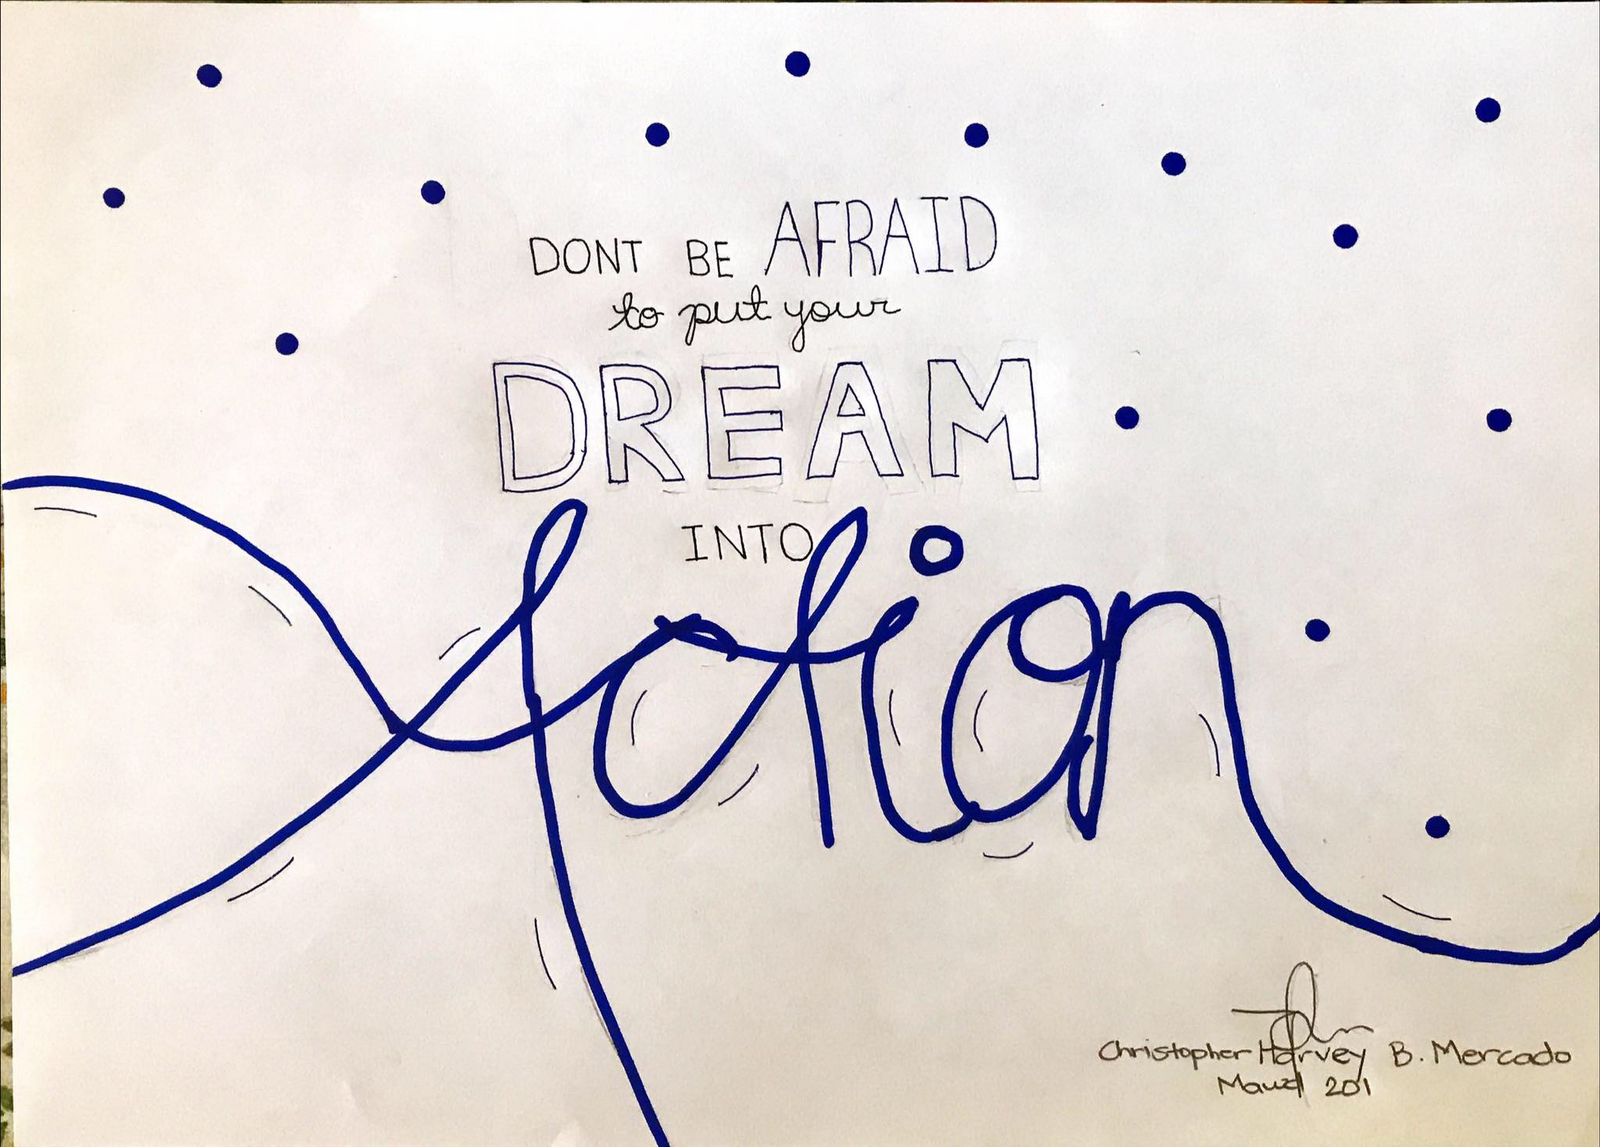 DONT BE AFRAID
to put your
DREAM
INTO
Action
Christopher Harvey B. Mercado
Mawd 201